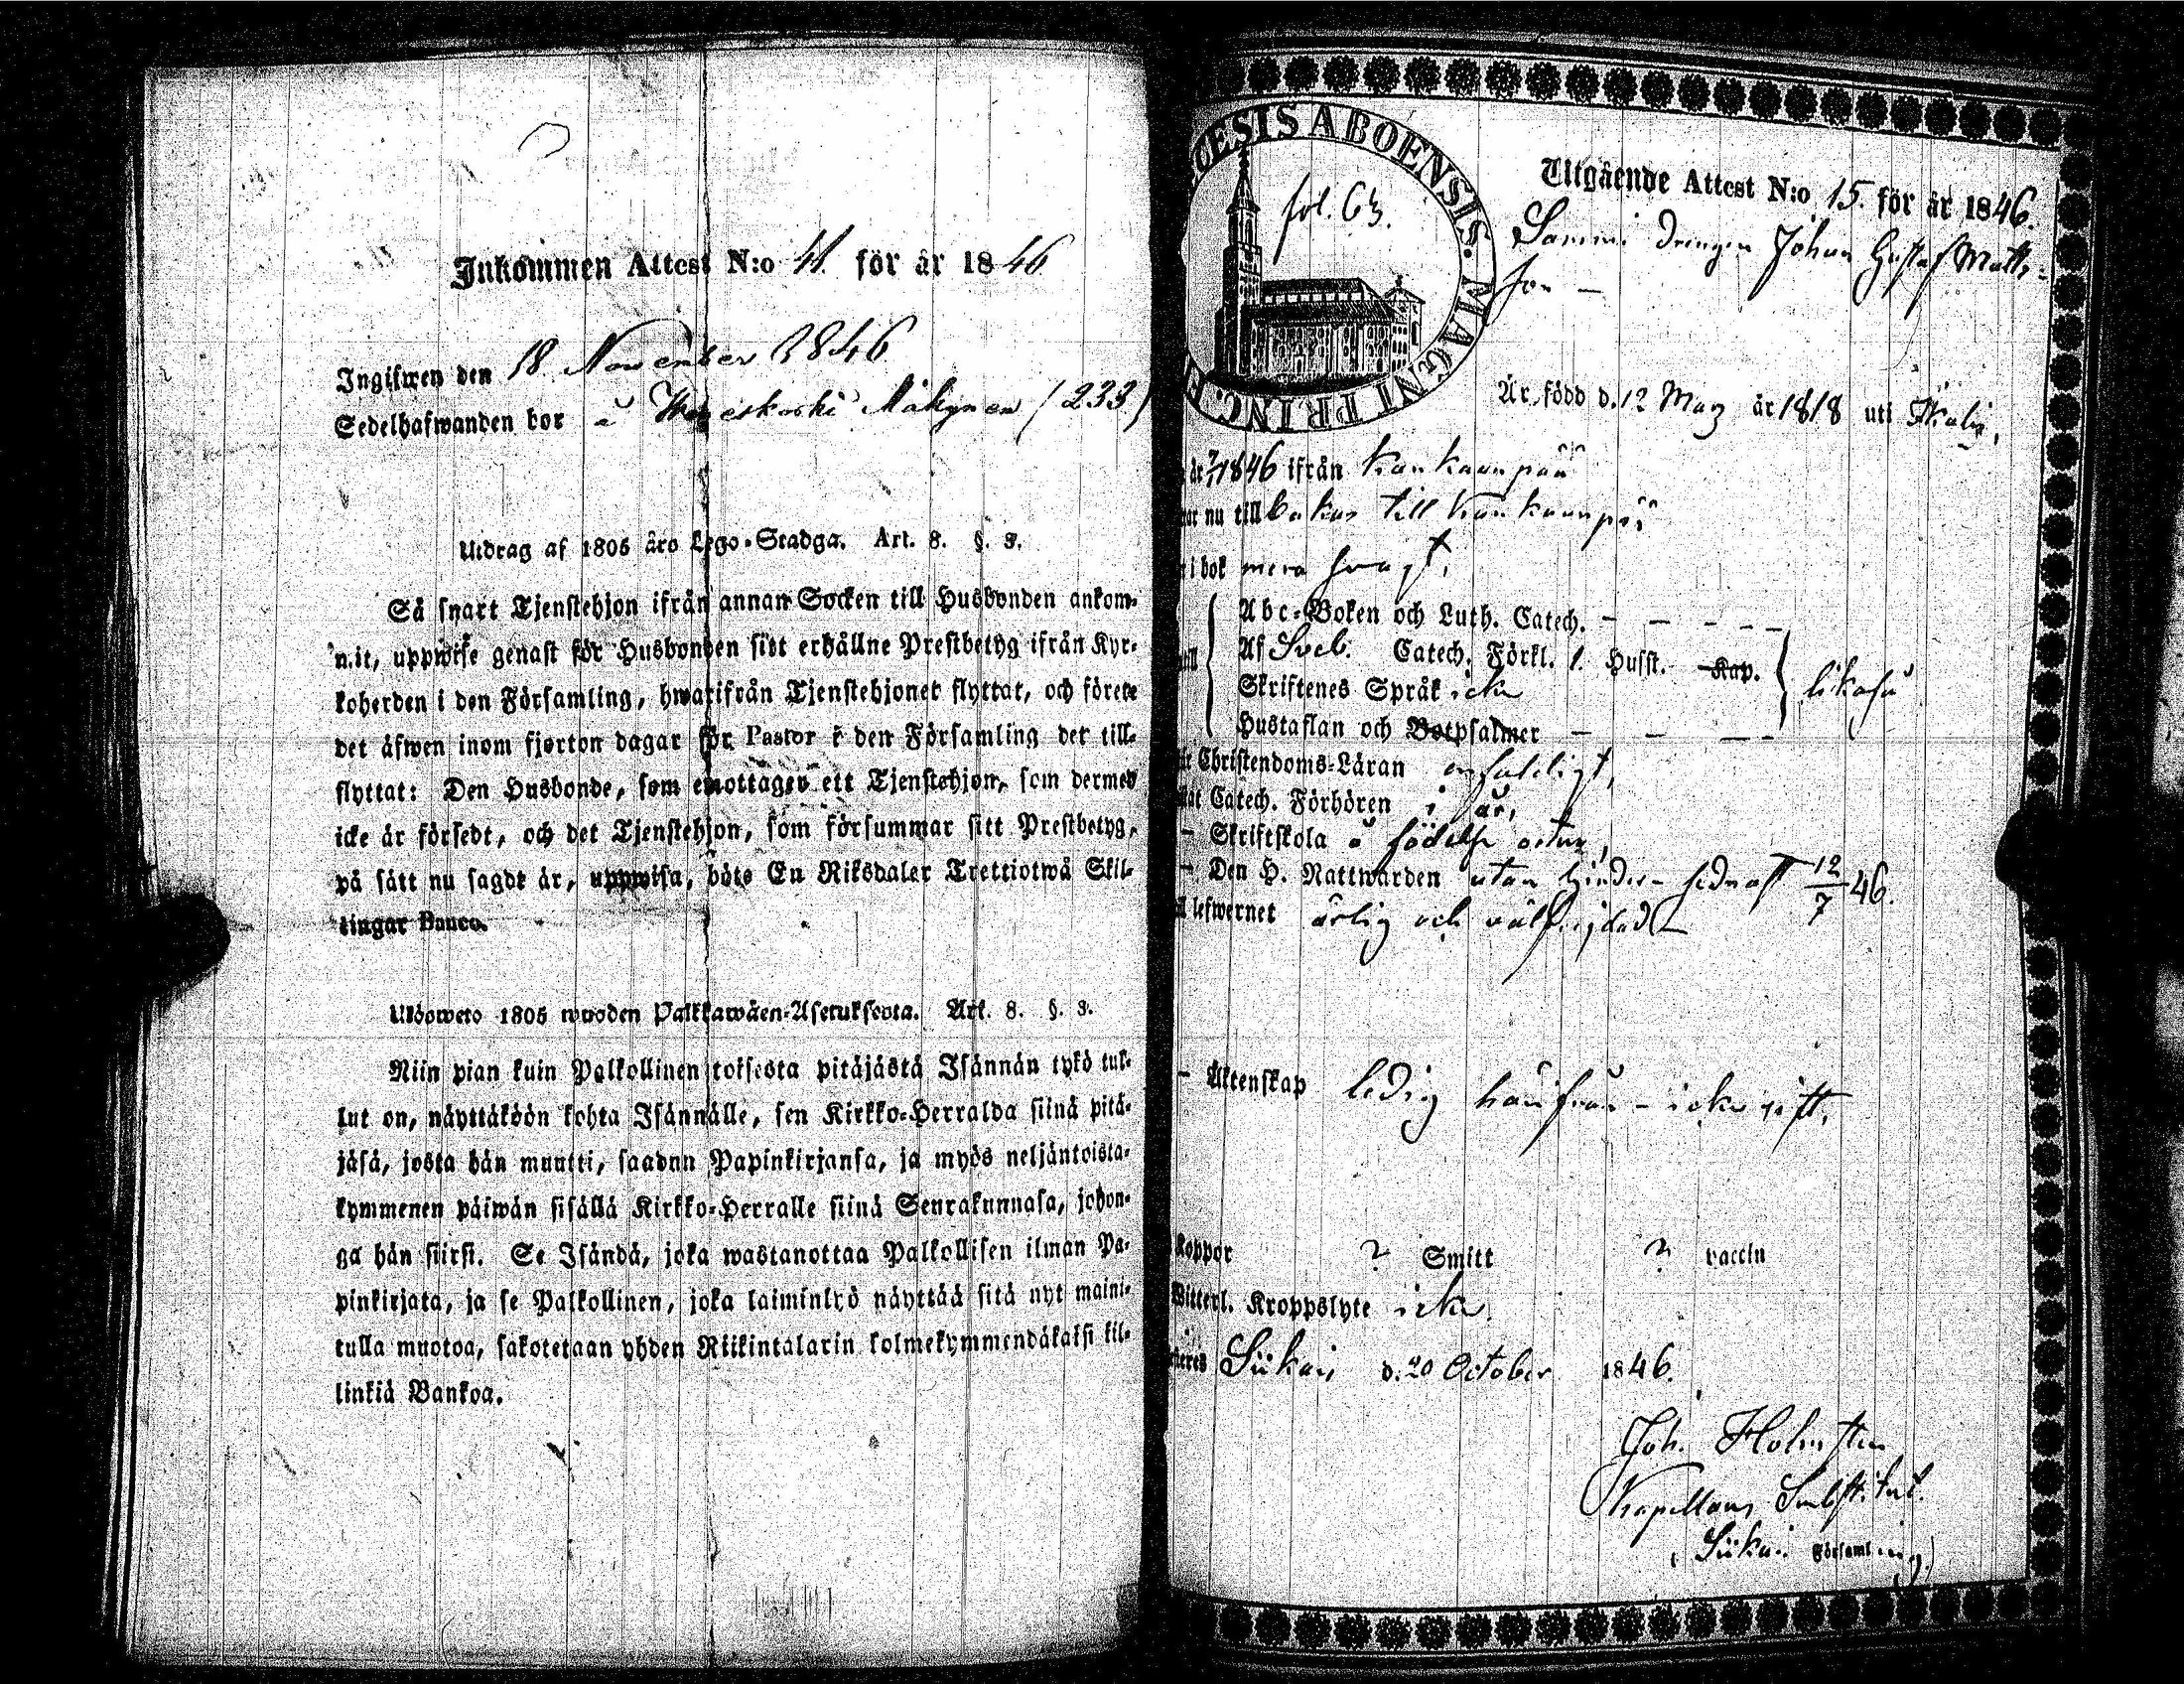 Inkommen Attest N:o 41. för år 1846
Ingifwen den 18 November 1846
Sedelhafwanden bor å Mäkynen (233)
Utdrag af 1805 års Lego-Stadga. Art. 8. §. 3.
Så snart Tjenstehjon ifrån annan Socken till Husbonden ankom-
mit, uppwise genast för Husbonden sitt erhållne Prestbetyg ifrån Kyr-
koherden i den Församling, hwarifrån Tjenstehjonet flyttat, och förete
det äfwen inom fjorton dagar för Pastor i den Församling det till-
flyttat: Den Husbonde, som emottager ett Tjenstehjon, som dermed
icke är försedt, och det Tjenstehjon, som försummar sitt Prestbetyg,
på sätt nu sagdt är, uppwisa, böte En Riksdaler Trettiotwå Skil-
lingar Banco.
Ulosweto 1805 wuoden Palkkawäen-Asetuksesta. Art. 8. §. 3.
Niin pian kuin Palkollinen toisesta pitäjästä Isännän tykö tul-
lut on, näyttäköön kohta Isännälle, sen Kirkko-Herralda siinä pitä-
jäsä, josta hän muutti, saadun Papinkirjansa, ja myös neljäntoista-
kymmenen päiwän sisällä Kirkko-Herralle siinä Seurakunnasa, johon-
ga hän siirsi. Se Isändä, joka wastanottaa Palkollisen ilman Pa-
pinkirjata, ja se Palkollinen, joka laiminlyö näyttää sitä nyt maini-
tulla muotoa, sakotetaan yhden Riikintalarin kolmekymmendäkaksi kil-
linkiä Bankoa.
CESIS ABOENSIS. MAGNI PRINC.
fol. 63.
Utgående Attest N:o 15. för år 1846.
Sammi Drängen Johan Gustaf Matts-
son —
Är född d. 12 Marz år 1818 uti Ikalis,
år 1846 ifrån Kankaanpää
nu tillbakas till Kankaanpää
i bok mera svagt,
Abc-Boken och Luth. Catech. — — — —
Af Sveb. Catech. Förkl. 1. Hufst. Kap.
Skriftenes Språk icke
likaså
Hustaflan och Botpsalmer — — — —
Christendoms-Läran enfaldigt,
Catech. Förhören i år,
— Skriftskola å födelse orten,
— Den H. Nattwarden utan hinder sednast 12/7 46.
lefwernet ärlig och välfrejdad —
— Äktenskap ledig härifrån — icke gift,
Koppor ? Smitt ? vaccin
Kroppslyte icke.
Siikais d. 20 October 1846.
Joh. Holmsten
Kapellans Substitut.
i Siikais Församling)